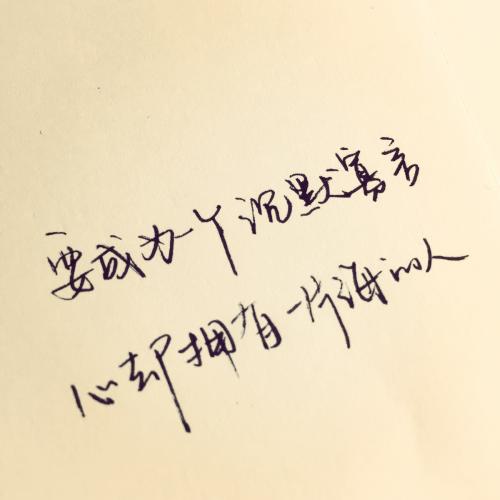 要成为一个沉默寡言
心却拥有一片海的人